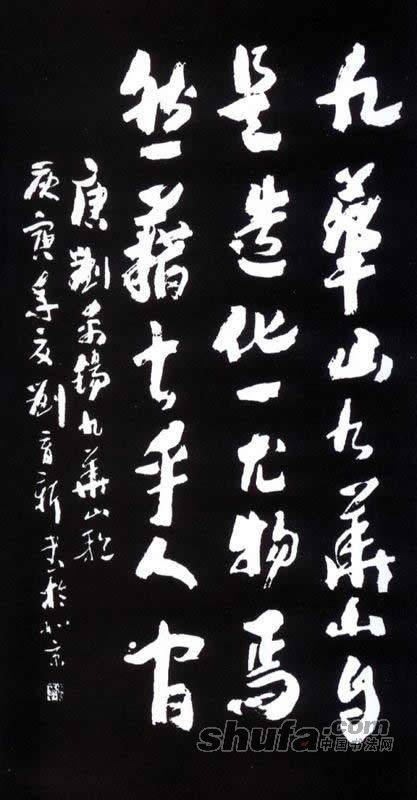 九華山九華山自
是造化一尤物焉
能藉甚乎人間
唐劉禹錫九華山歌
庚寅年夏劉育新書於北京
shufa.com
中国书法网